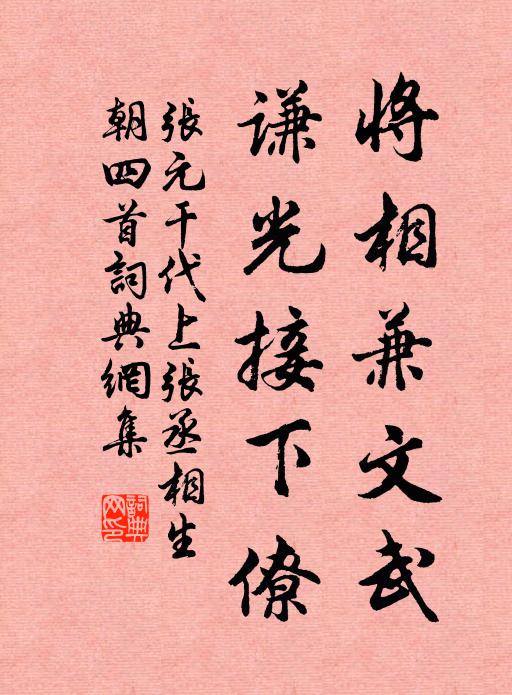 將相兼文武
謙光接下僚
張元干代上張丞相生
朝四首詞典網集
詞典网印